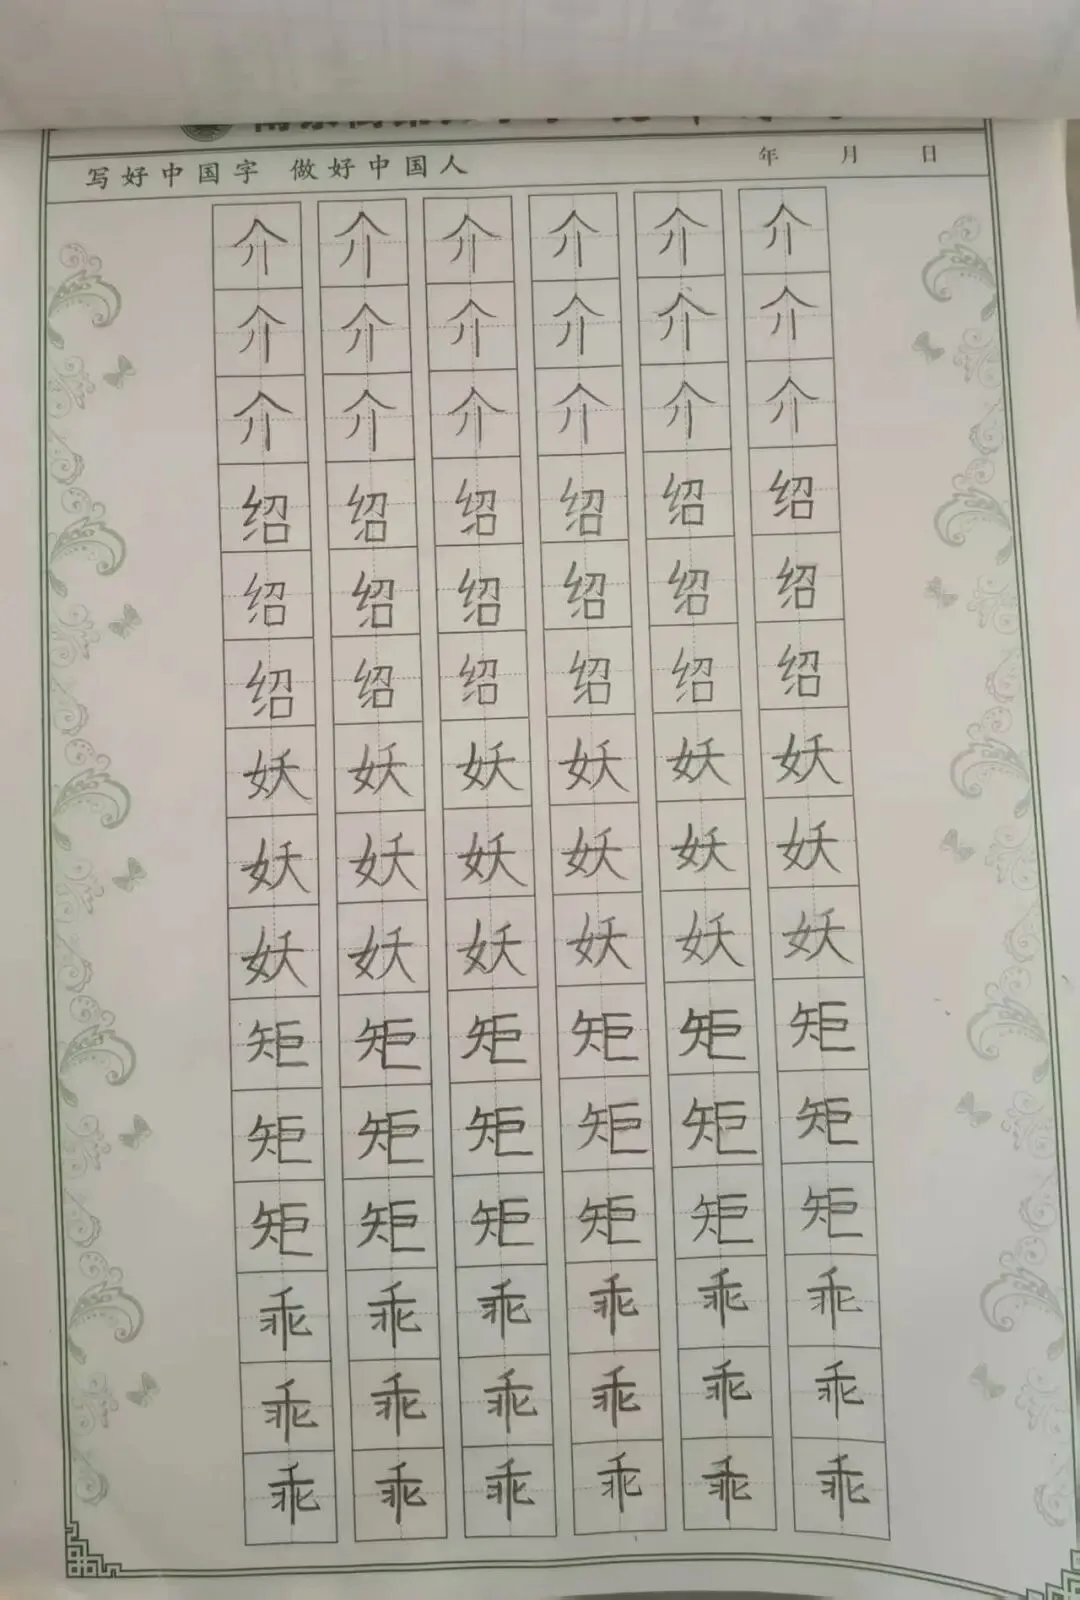 写好中国字 做好中国人 年 月 日
介 介 介 介 介 介
介 介 介 介 介 介
介 介 介 介 介 介
绍 绍 绍 绍 绍 绍
绍 绍 绍 绍 绍 绍
绍 绍 绍 绍 绍 绍
妖 妖 妖 妖 妖 妖
妖 妖 妖 妖 妖 妖
妖 妖 妖 妖 妖 妖
矩 矩 矩 矩 矩 矩
矩 矩 矩 矩 矩 矩
矩 矩 矩 矩 矩 矩
乖 乖 乖 乖 乖 乖
乖 乖 乖 乖 乖 乖
乖 乖 乖 乖 乖 乖